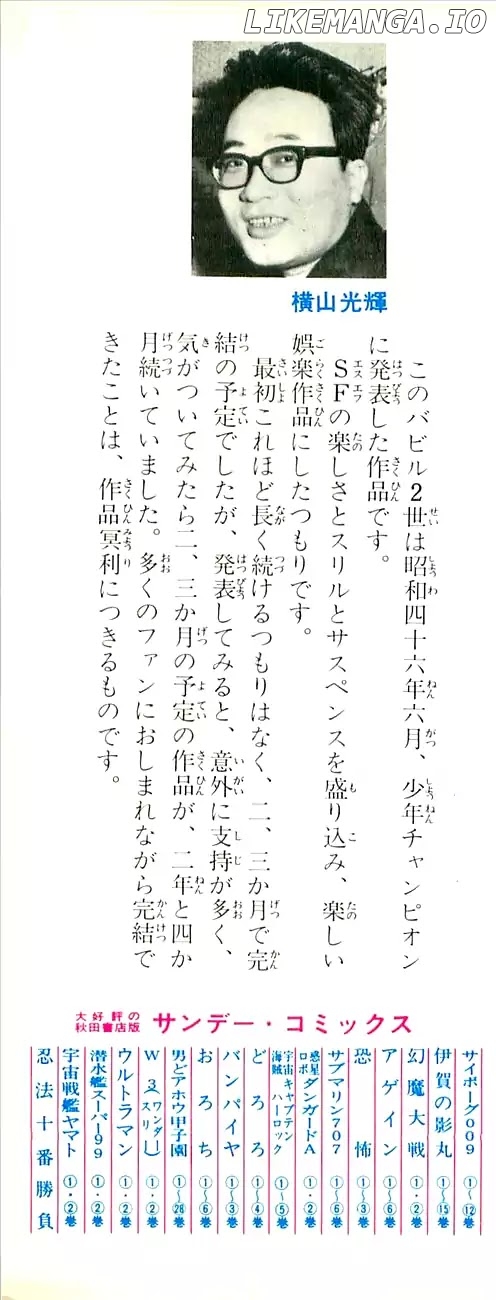 LIKEMANGA.IO
横山光輝
このバビル2世は昭和四十六年六月、少年チャンピオン
に発表した作品です。
SFの楽しさとスリルとサスペンスを盛り込み、楽しい
娯楽作品にしたつもりです。
最初これほど長く続けるつもりはなく、二、三か月で完
結の予定でしたが、発表してみると、意外に支持が多く、
気がついてみたら二、三か月の予定の作品が、二年と四か
月続いていました。多くのファンにおしまれながら完結で
きたことは、作品冥利につきるものです。
大好評の
秋田書店版
サンデー・コミックス
サイボーグ009 ①~⑫巻
伊賀の影丸 ①~⑮巻
幻魔大戦 ①・②巻
アゲイン ①~⑥巻
恐怖 ①~③巻
サブマリン707 ①~⑥巻
惑星ロボ ダンガードA ①・②巻
宇宙海賊 キャプテンハーロック ①~⑤巻
どろろ ①~④巻
バンパイヤ ①~③巻
おろち ①~⑥巻
男どアホウ甲子園 ①~㉘巻
W3(ワンダースリー) ①・②巻
ウルトラマン ①・②巻
潜水艦スーパー99 ①・②巻
宇宙戦艦ヤマト ①・②巻
忍法十番勝負